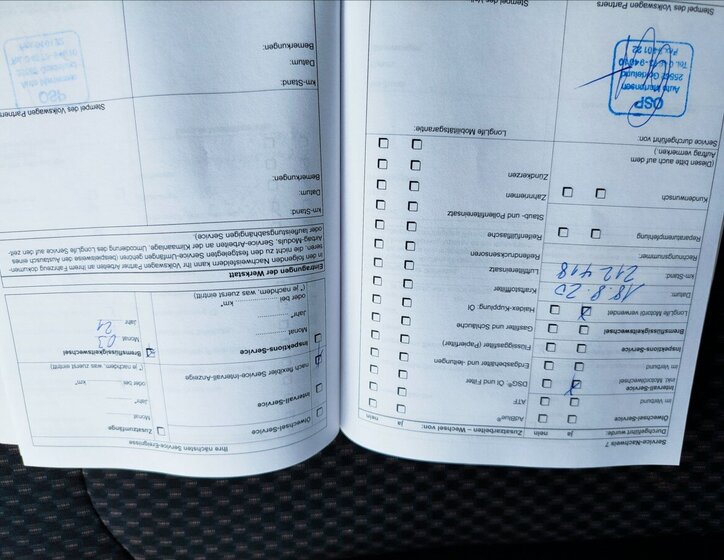 Service-Nachweis 7
Durchgeführt wurde: ja nein
Ölwechsel-Service
im Verbund
Intervall-Service
inkl. Motorölwechsel
im Verbund
Inspektions-Service
Bremsflüssigkeitswechsel
LongLife Motoröl verwendet
Datum: 18.8.20
km-Stand: 212 418
Rechnungsnummer:
Reparaturempfehlung
Kundenwunsch
(Diesen bitte auch auf dem
Auftrag vermerken.)
Service durchgeführt von:
OSP
Auto Martensen
Stempel des Volkswagen Partners
Zusatzarbeiten – Wechsel von: ja nein
AdBlue®
ATF
DSG®, Öl und Filter
Erdgasbehälter und -leitungen
Flüssiggasfilter (Papierfilter)
Gasfilter und Schläuche
Haldex-Kupplung: Öl
Kraftstofffilter
Luftfiltereinsatz
Reifendrucksensoren
Reifenfüllflasche
Staub- und Pollenfiltereinsatz
Zahnriemen
Zündkerzen
LongLife Mobilitätsgarantie:
Ihre nächsten Service-Ereignisse
Ölwechsel-Service
Intervall-Service
nach flexibler Service-Intervall-Anzeige
Inspektions-Service
Monat
Jahr*
oder bei km*
(* je nachdem, was zuerst eintritt)
Zusatzumfänge
Monat
Jahr*
oder bei km*
(* je nachdem, was zuerst eintritt)
Bremsflüssigkeitswechsel
Monat 03
Jahr 21
Eintragungen der Werkstatt
In den folgenden Nachweisfeldern kann Ihr Volkswagen Partner Arbeiten an Ihrem Fahrzeug dokumen-
tieren, die nicht zu den festgelegten Service-Umfängen gehören (beispielsweise den Austausch eines
Airbag-Moduls, Service-Arbeiten an der Klimaanlage, Umcodierung des LongLife Service auf den zeit-
oder laufleistungsabhängigen Service).
km-Stand:
Datum:
Bemerkungen:
Stempel des Volkswagen Partners
km-Stand:
Datum:
Bemerkungen: